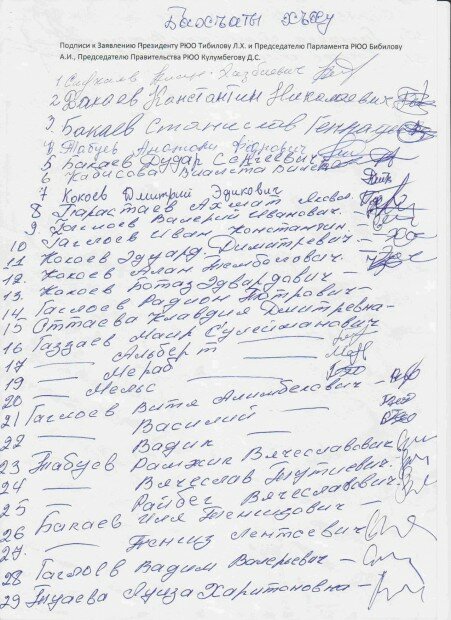 Подписи к Заявлению Президенту РЮО Тибилову Л.Х. и Председателю Парламента РЮО Бибилову
А.И., Председателю Правительства РЮО Кулумбегову Д.С.
1
2 Бакаев Константин Николаевич
3. Бакаев Станислав
4. Табуев
5 Бакаев Дудар Сергеевич
6 Кабисова Виалета
7 Кокоев Дмитрий Эдикович
8 Ахмат
9 Гаглоев Валерий Иванович.
10 Гаглоев Иван Константин.
11. Кокоев Эдуард Димитревич.
12. Кокоев Алан
13. Кокоев Ботаз Эдвардович -
14. Гаглоев Радион
15 Оттаева Клавдия Дмитревна-
16 Газзаев Маир Сулейманович
17 — Альберт
19 — Мераб
20 — Мельс
21 Гаглоев Витя Алимбегович -
Василий
22 — Вадик
23 Табуев Рамжик Вячеславович
24 — Вячеслав
25 — Райбег Вячеславович
26 Бакаев Илья
27. — Тенгиз
28 Гаглоев Вадим Валерьевич -
29 Туаева Луиза Харитоновна -